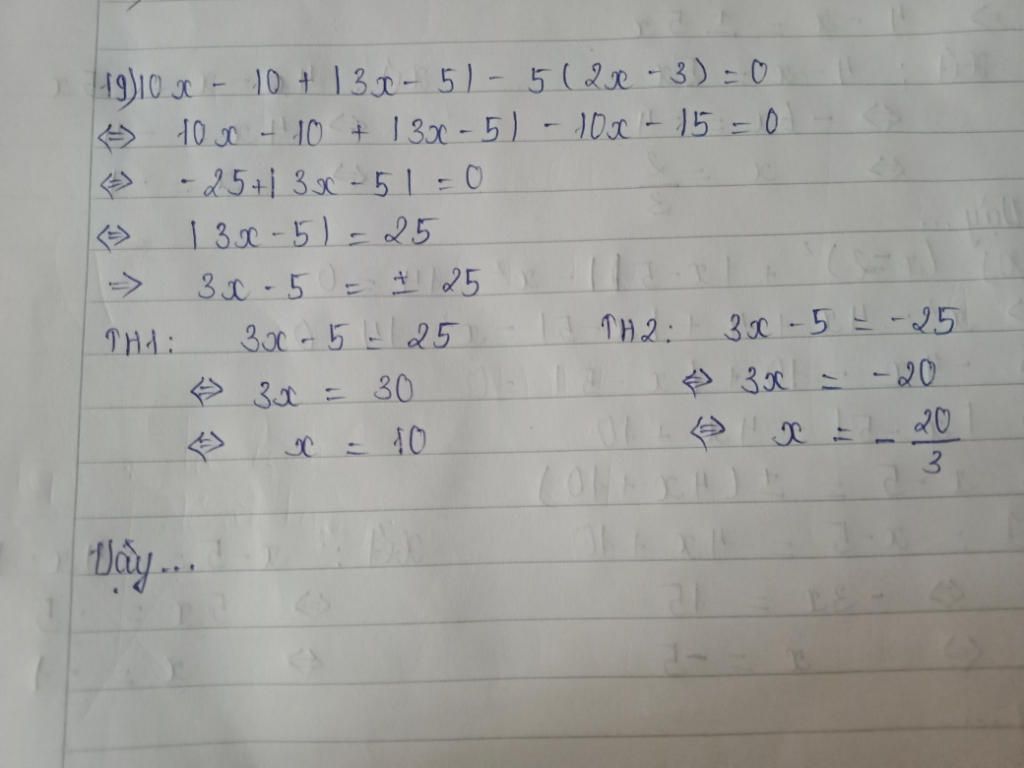 19) 10x - 10 + |3x - 5| - 5(2x - 3) = 0
⇔ 10x - 10 + |3x - 5| - 10x - 15 = 0
⇔ -25 + |3x - 5| = 0
⇔ |3x - 5| = 25
⇒ 3x - 5 = ± 25
TH1: 3x - 5 = 25 TH2: 3x - 5 = -25
⇔ 3x = 30 ⇔ 3x = -20
⇔ x = 10 ⇔ x = -20/3
Vậy...